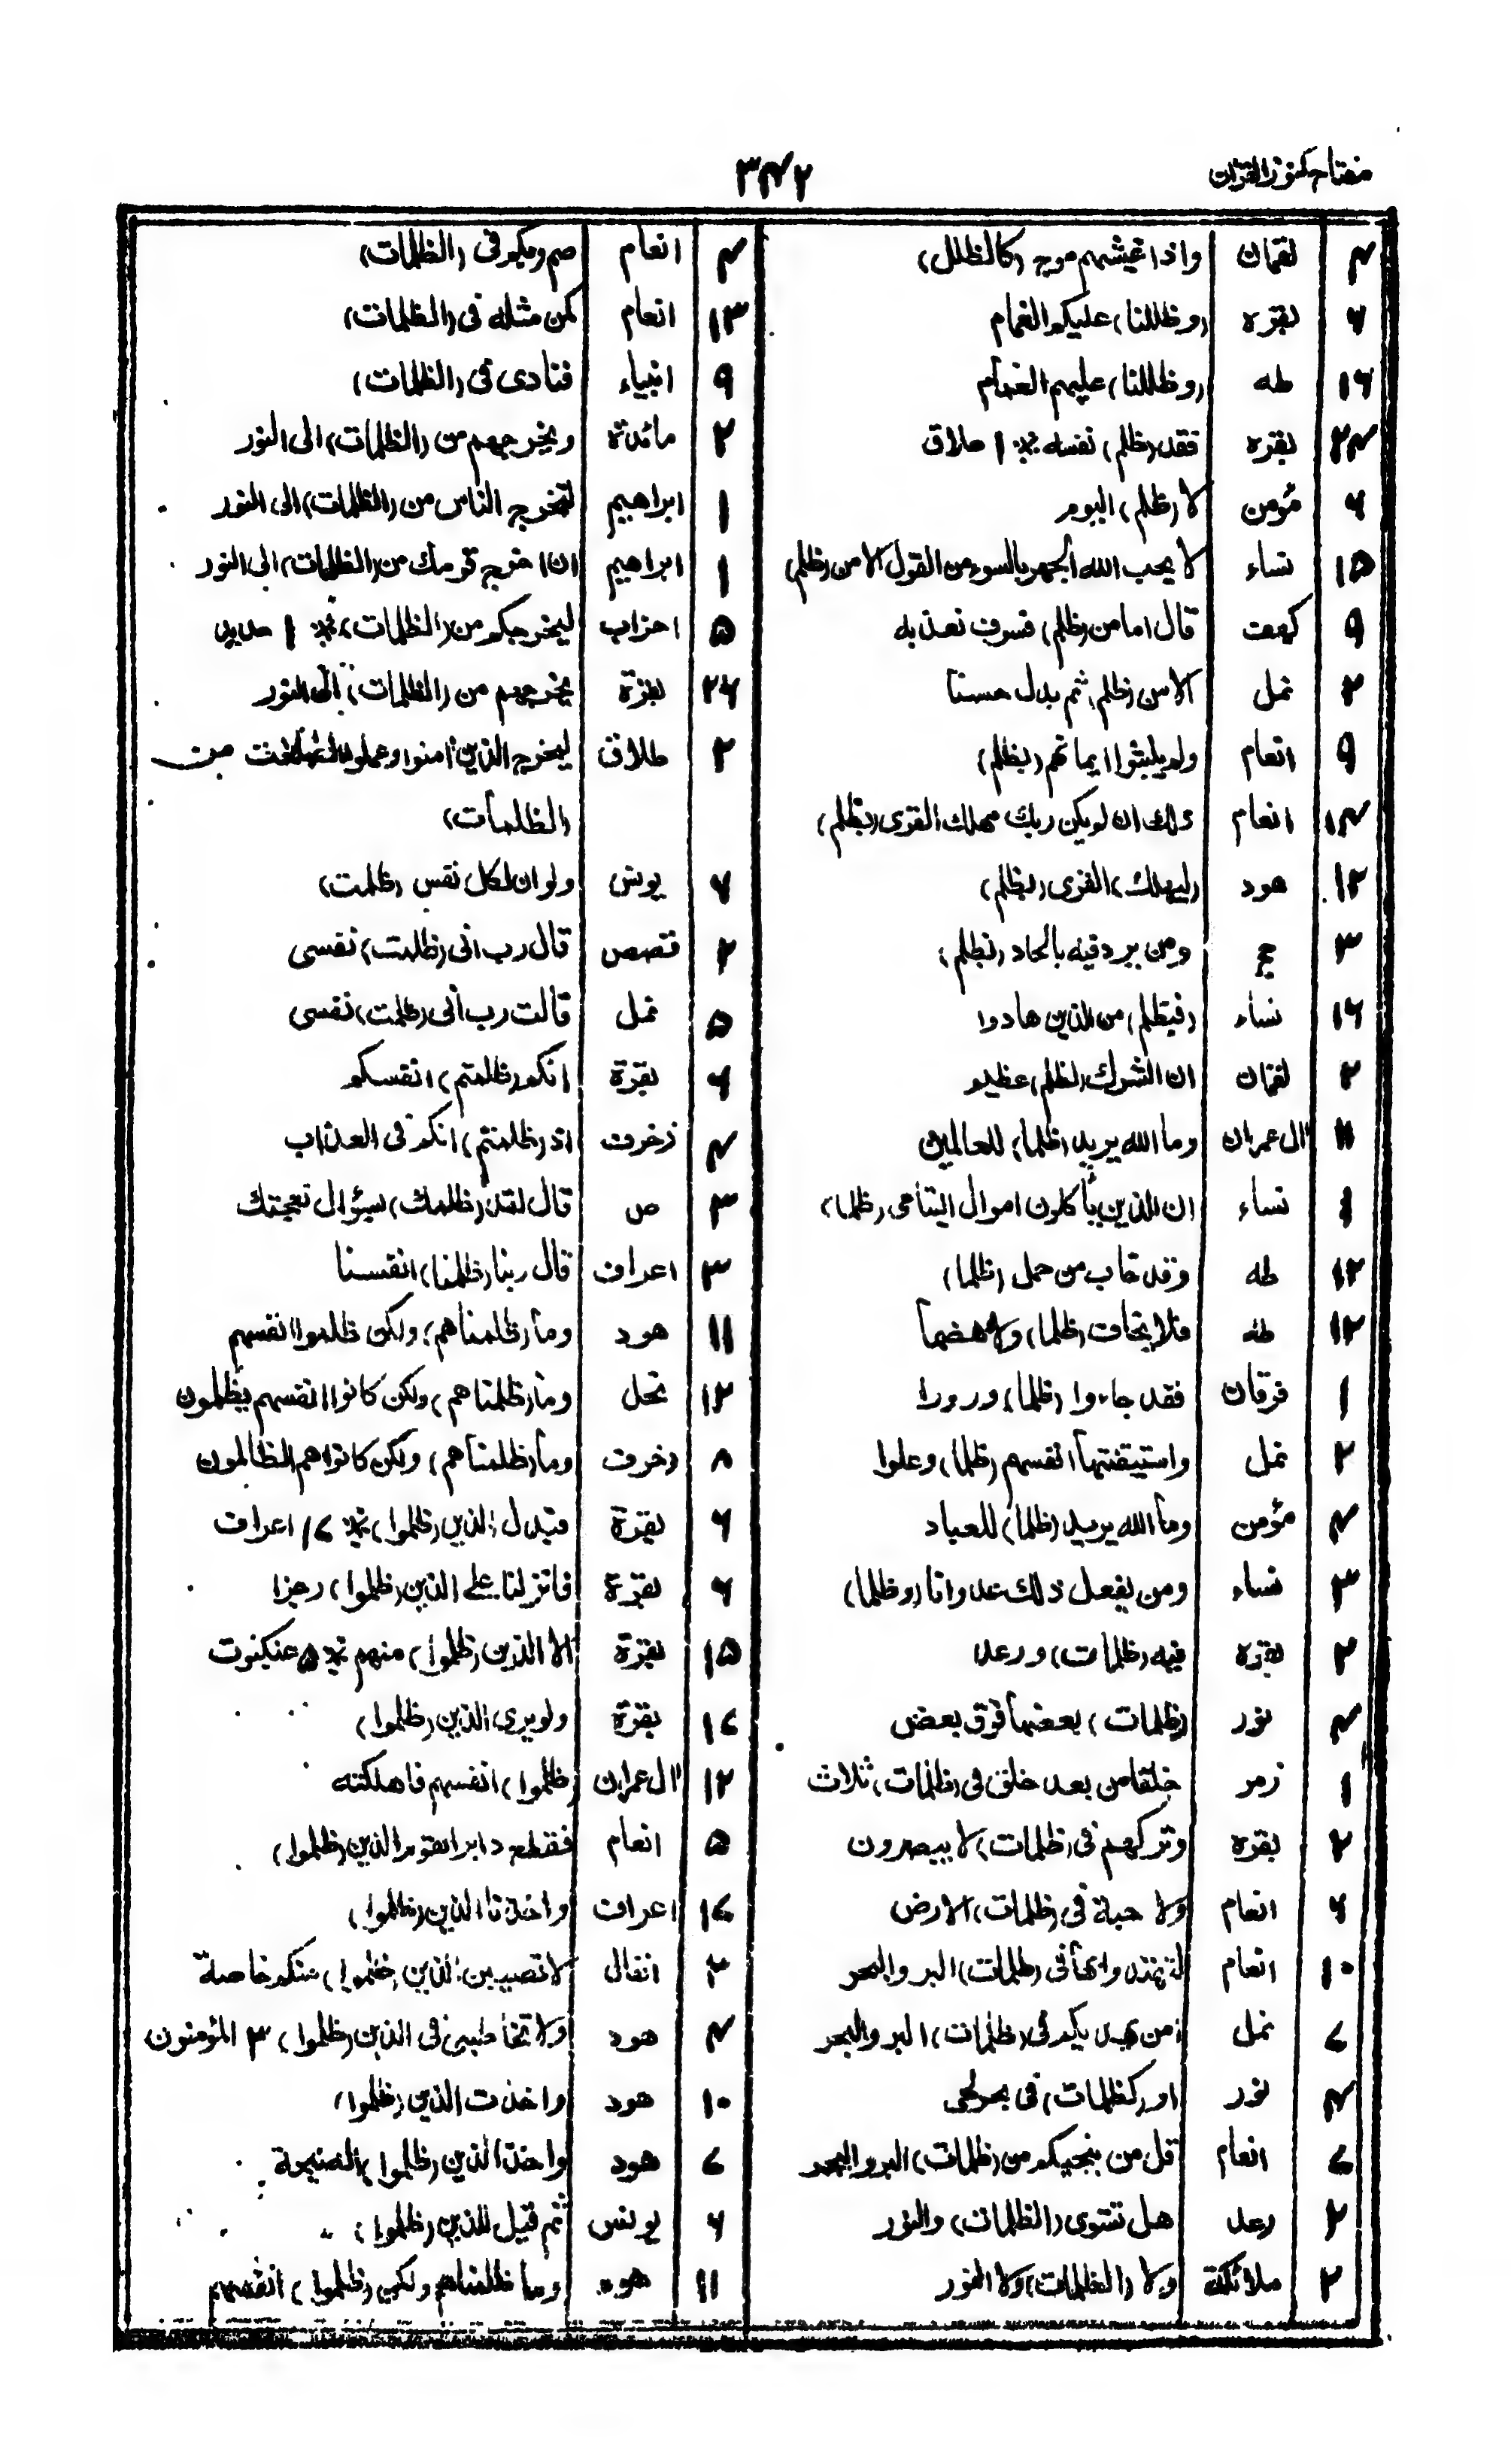 مفتاح کنوز القرآن
۳۴۲
۴ لقمان واذا غیشهم موج (کالظلل)
۶ بقره (وظللنا) علیکم الغمام
۱۶ طه (وظللنا) علیهم الغمام
۲۴ بقره فقد (ظلم) نفسه ۱ طلاق
۶ مؤمن لا (ظلم) الیوم
۱۵ نساء لا یحب الله الجهر بالسوء من القول الا من (ظلم)
۹ کهف قال اما من (ظلم) فسوف نعذبه
۲ نمل الا من (ظلم) ثم بدل حسنا
۹ انعام ولم یلبثوا ایمانهم (بظلم)
۱۴ انعام ذلك ان لم یکن ربك مهلك القری (بظلم)
۱۲ هود (لیهلك) القری (بظلم)
۳ حج ومن یرد فیه بالحاد (بظلم)
۱۶ نساء (فبظلم) من الذین هادوا
۲ لقمان ان الشرك (لظلم) عظیم
۱۱ آل عمران وما الله یرید (ظلما) للعالمین
۱ نساء ان الذین یأکلون اموال الیتامی (ظلما)
۱۲ طه وقد خاب من حمل (ظلما)
۱۲ طه فلا یخاف (ظلما) ولا هضما
۱ فرقان فقد جاءوا (ظلما) وزورا
۲ نمل واستیقنتها انفسهم (ظلما) وعلوا
۴ مؤمن وما الله یرید (ظلما) للعباد
۳ نساء ومن یفعل ذلك عدوانا (وظلما)
۲ بقره فیه (ظلمات) ورعد
۴ نور (ظلمات) بعضها فوق بعض
۱ زمر خلقا من بعد خلق فی (ظلمات) ثلاث
۲ بقره وترکهم فی (ظلمات) لا یبصرون
۶ انعام ولا حبة فی (ظلمات) الارض
۱۰ انعام لتهتدوا بها فی (ظلمات) البر والبحر
۷ نمل امن یهدیکم فی (ظلمات) البر والبحر
۴ نور او (کظلمات) فی بحر لجی
۷ انعام قل من ینجیکم من (ظلمات) البر والبحر
۲ رعد هل تستوی (الظلمات) والنور
۲ ملائکة ولا (الظلمات) ولا النور
۴ انعام صم وبکم فی (الظلمات)
۱۳ انعام کمن مثله فی (الظلمات)
۹ انبیاء فنادی فی (الظلمات)
۲ مائدة ویخرجهم من (الظلمات) الی النور
۱ ابراهیم لتخرج الناس من (الظلمات) الی النور
۱ ابراهیم ان اخرج قومك من (الظلمات) الی النور
۵ احزاب لیخرجکم من (الظلمات) ۱ حدید
۲۴ بقرة یخرجهم من (الظلمات) الی النور
۲ طلاق لیخرج الذین آمنوا وعملوا الصلحت من
(الظلمات)
۷ یونس ولو ان لکل نفس (ظلمت)
۲ قصص قال رب انی (ظلمت) نفسی
۵ نمل قالت رب انی (ظلمت) نفسی
۶ بقرة انکم (ظلمتم) انفسکم
۴ زخرف اذ (ظلمتم) انکم فی العذاب
۳ ص قال لقد (ظلمك) بسؤال نعجتك
۳ اعراف قال ربنا (ظلمنا) انفسنا
۱۱ هود وما (ظلمناهم) ولکن ظلموا انفسهم
۱۲ نحل وما (ظلمناهم) ولکن کانوا انفسهم یظلمون
۸ زخرف وما (ظلمناهم) ولکن کانوا هم الظالمون
۶ بقرة فبدل الذین (ظلموا) ۱۷ اعراف
۶ بقرة فانزلنا علی الذین (ظلموا) رجزا
۱۵ بقرة الا الذین (ظلموا) منهم ۵ عنکبوت
۱۷ بقرة ولو یری الذین (ظلموا)
۱۲ آل عمران (ظلموا) انفسهم فاهلکته
۵ انعام فقطع دابر القوم الذین (ظلموا)
۱۷ اعراف واخذنا الذین (ظلموا)
۳ انفال لا تصیبن الذین (ظلموا) منکم خاصة
۴ هود ولا تخاطبنی فی الذین (ظلموا) ۳ المؤمنون
۱۰ هود واخذت الذین (ظلموا)
۷ هود واخذ الذین (ظلموا) الصیحة
۶ یونس ثم قیل للذین (ظلموا)
۱۱ هود وما ظلمناهم ولکن (ظلموا) انفسهم